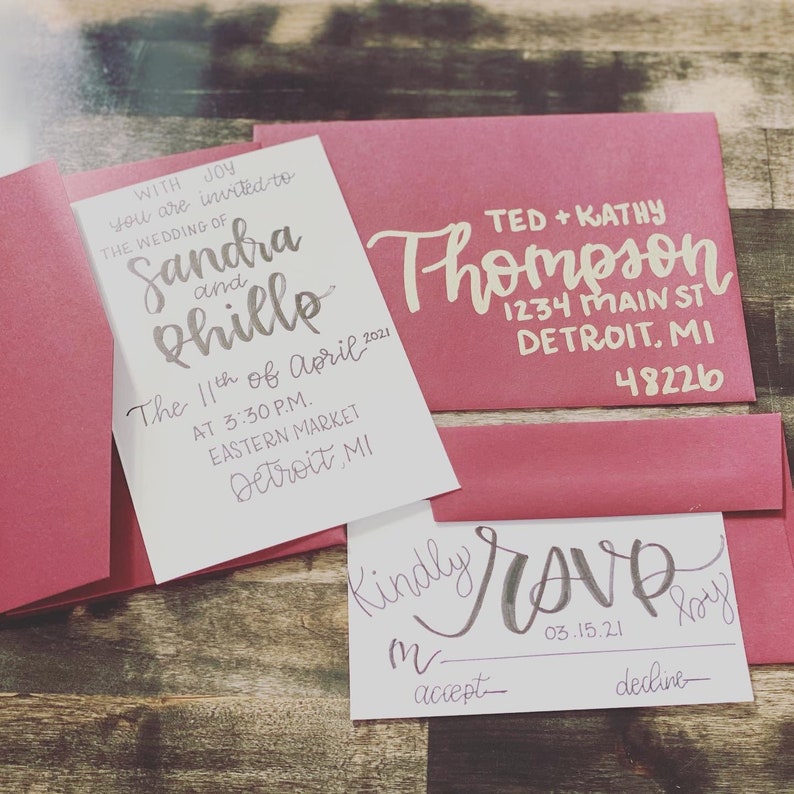 WITH JOY
you are invited to
THE WEDDING OF
Sandra
and
Phillp
The 11th of April 2021
AT 3:30 P.M.
EASTERN MARKET
Detroit, MI
TED + KATHY
Thompson
1234 MAIN ST
DETROIT, MI
48226
Kindly RSVP by
03.15.21
M
accept
decline